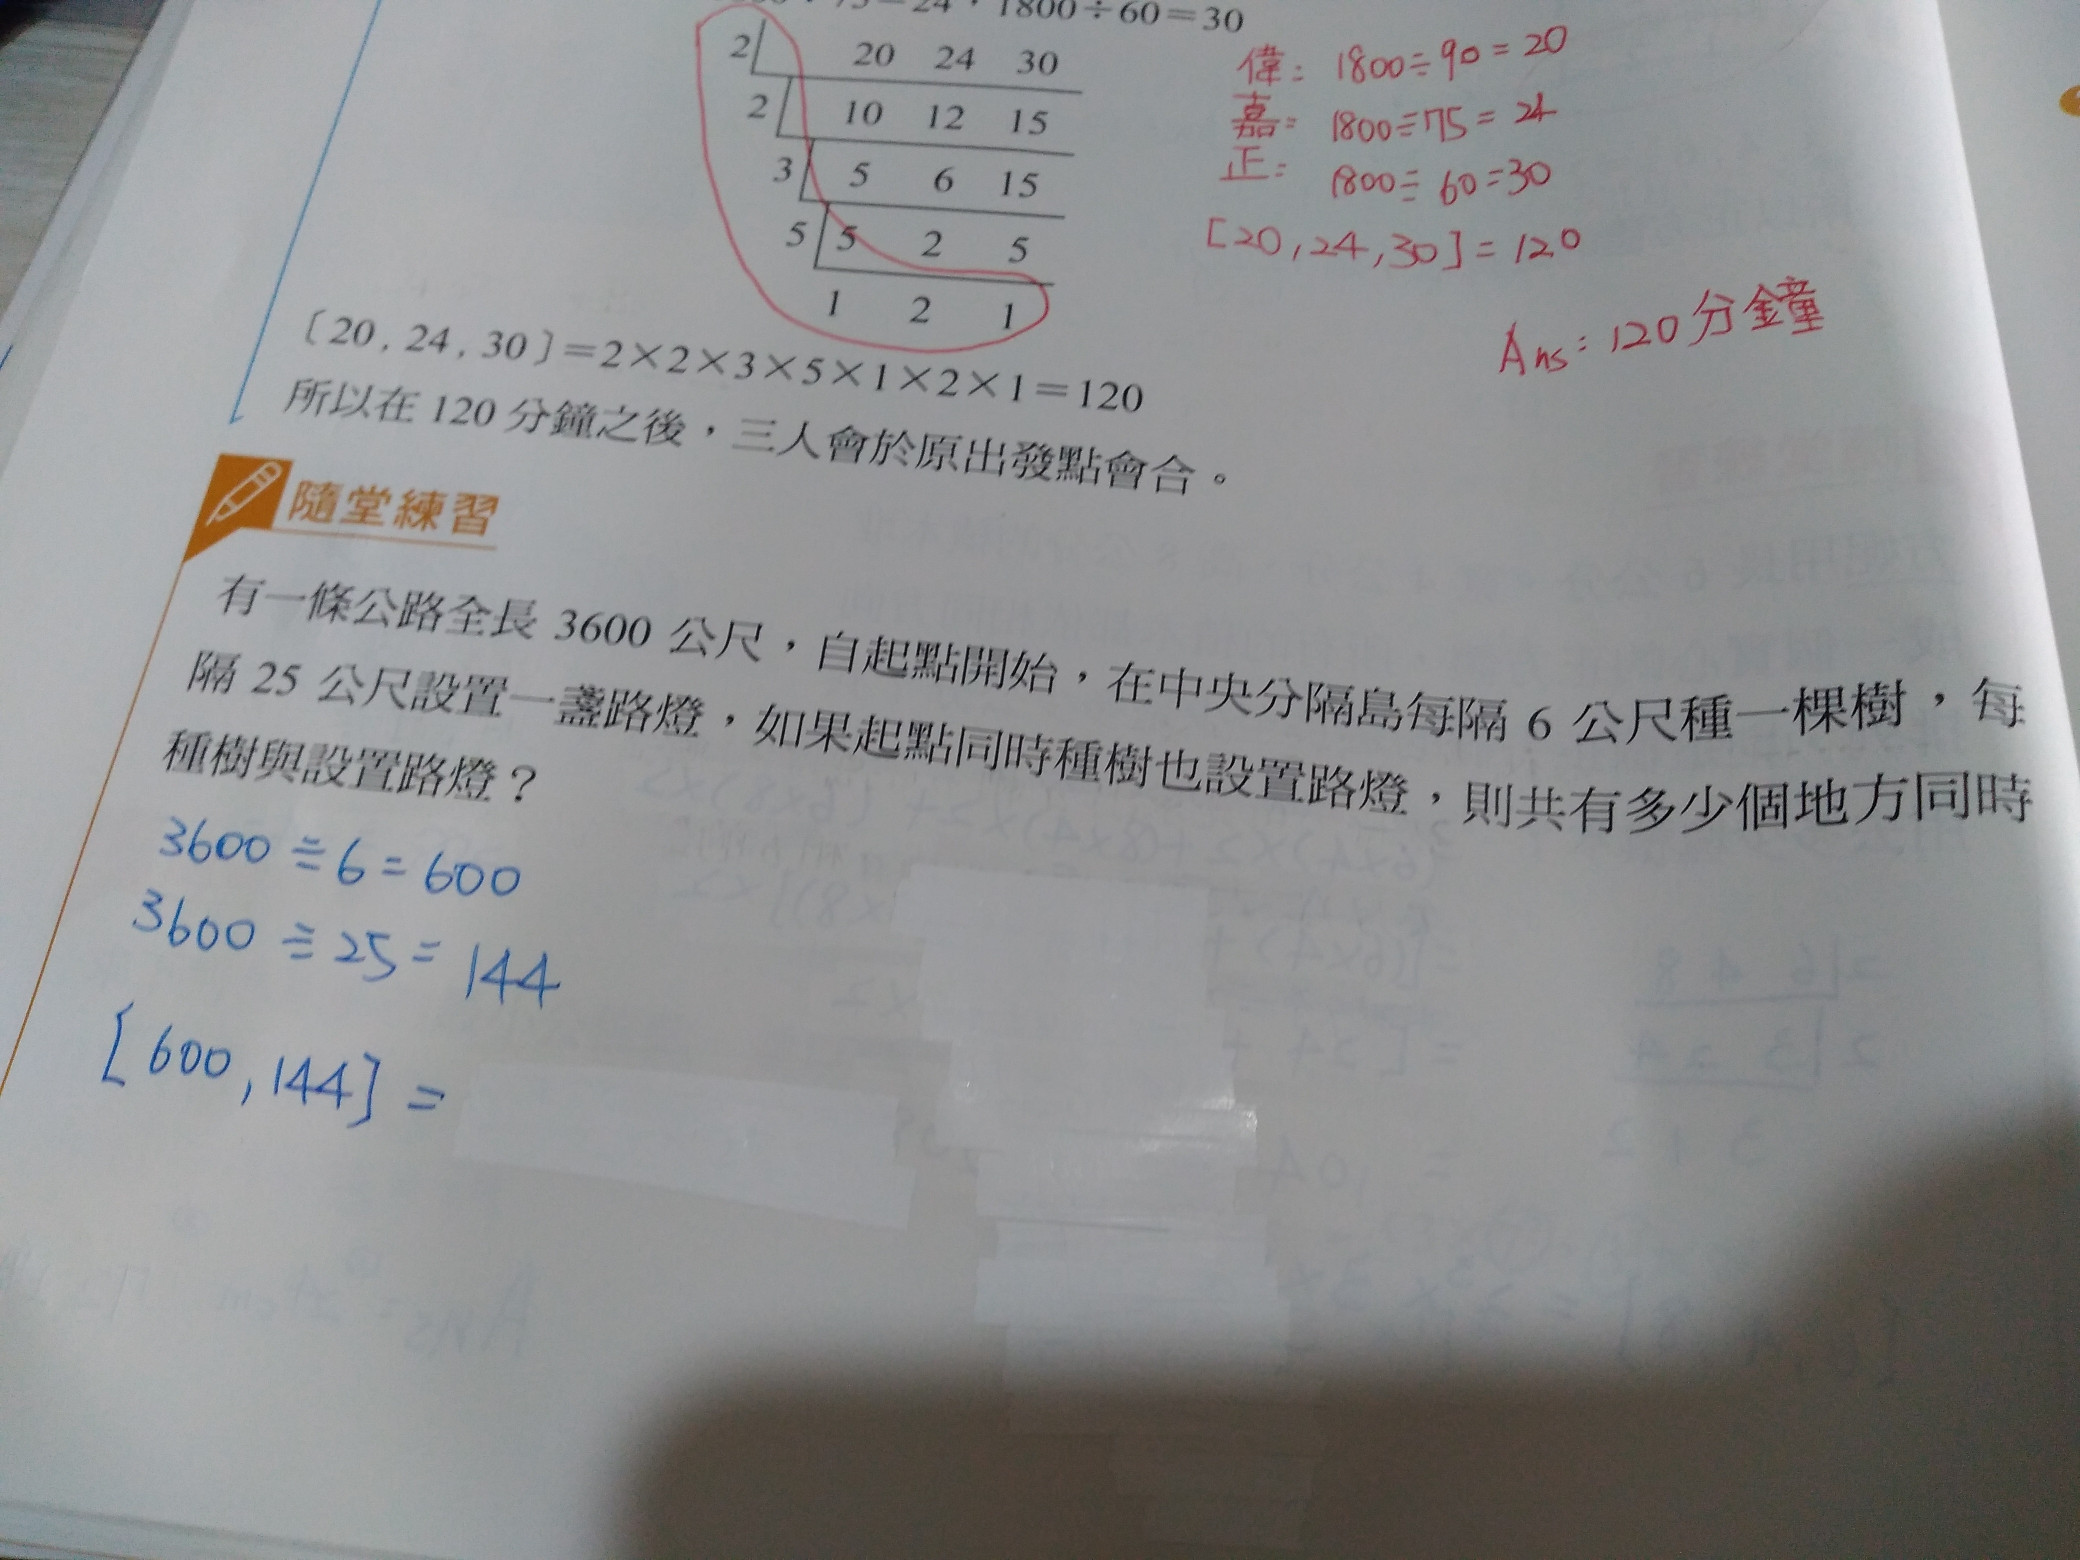 24，1800÷60＝30
2 20 24 30
2 10 12 15
3 5 6 15
5 5 2 5
1 2 1
〔20 , 24 , 30〕＝2×2×3×5×1×2×1＝120
所以在 120 分鐘之後，三人會於原出發點會合。
偉： 1800÷90=20
嘉： 1800÷75=24
正： 1800÷60=30
[20,24,30]=120
Ans：120分鐘
隨堂練習
有一條公路全長 3600 公尺，自起點開始，在中央分隔島每隔 6 公尺種一棵樹，每
隔 25 公尺設置一盞路燈，如果起點同時種樹也設置路燈，則共有多少個地方同時
種樹與設置路燈？
3600÷6=600
3600÷25=144
[600,144]=